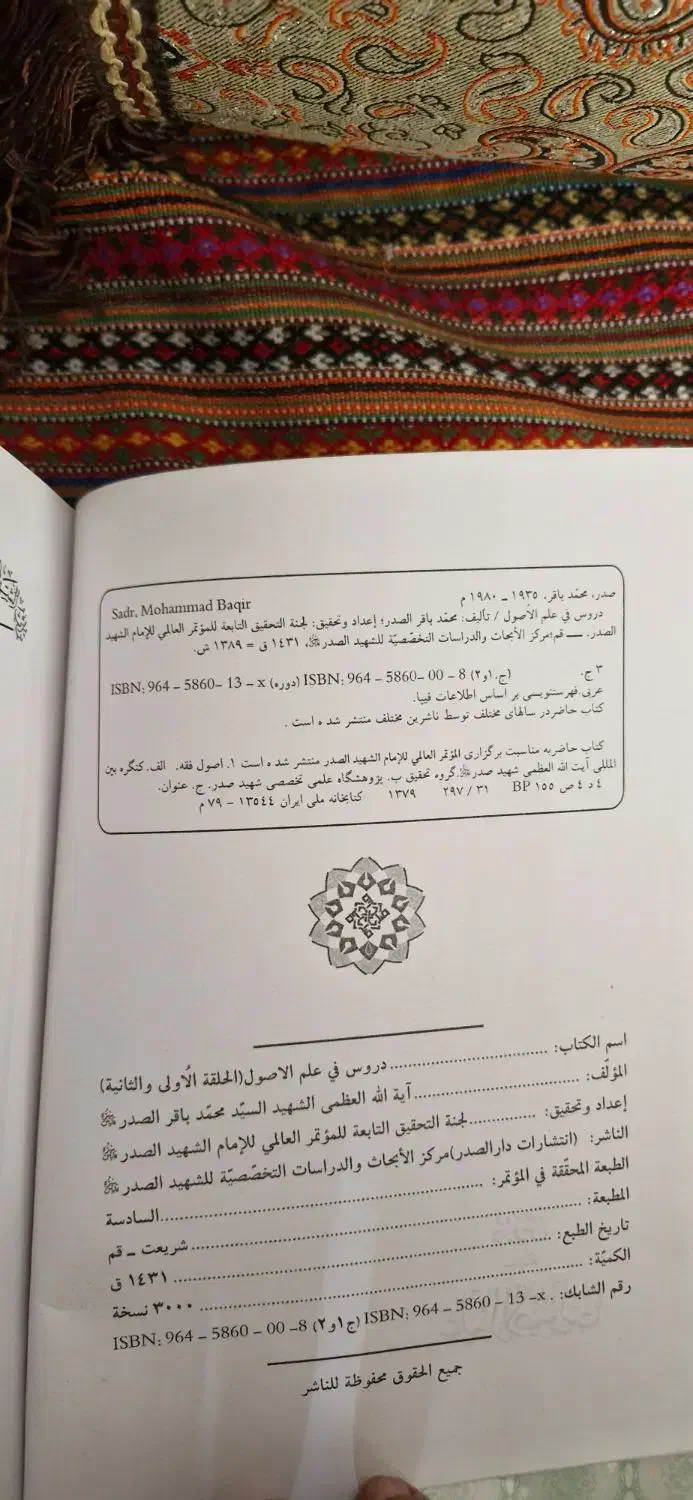 Sadr, Mohammad Baqir
صدر، محمّد باقر، ١٩٣٥ ـ ١٩٨٠ م
دروس في علم الاُصول / تأليف: محمّد باقر الصدر؛ إعداد وتحقيق: لجنة التحقيق التابعة للمؤتمر العالمي للإمام الشهيد
الصدر. ـــ قم؛ مركز الأبحاث والدراسات التخصّصيّة للشهيد الصدر، ١٤٣١ ق = ١٣٨٩ ش.
٣ ج. (ج. ١و٢) ISBN: 964 – 5860 – 00 – 8 (دوره) ISBN: 964 – 5860 – 13 – x
عربی. فهرستنویسی بر اساس اطلاعات فیپا.
کتاب حاضر در سالهای مختلف توسط ناشرین مختلف منتشر شد ه است .
کتاب حاضر به مناسبت برگزاری المؤتمر العالمي للإمام الشهيد الصدر منتشر شد ه است ١. اصول فقه. الف. کنگره بین
المللی آیت الله العظمی شهید صدر. گروه تحقیق ب. پژوهشگاه علمی تخصصی شهید صدر. ج. عنوان.
٤ د ٤ ص BP ١٥٥ ٢٩٧ / ٣١ ١٣٧٩ کتابخانه ملی ایران ١٣٥٤٤ – ٧٩ م
اسم الكتاب: دروس في علم الاصول(الحلقة الاُولى والثانية)
المؤلّف: آية الله العظمى الشهيد السيّد محمّد باقر الصدر
إعداد وتحقيق: لجنة التحقيق التابعة للمؤتمر العالمي للإمام الشهيد الصدر
الناشر: (انتشارات دارالصدر)مركز الأبحاث والدراسات التخصّصيّة للشهيد الصدر
الطبعة المحقّقة في المؤتمر: السادسة
المطبعة: شريعت ـ قم
تاريخ الطبع: ١٤٣١ ق
الكميّة: ٣٠٠٠ نسخة
رقم الشابك: . ISBN: 964 – 5860 – 13 –x (ج ١و٢) ISBN: 964 – 5860 – 00 –8
جميع الحقوق محفوظة للناشر